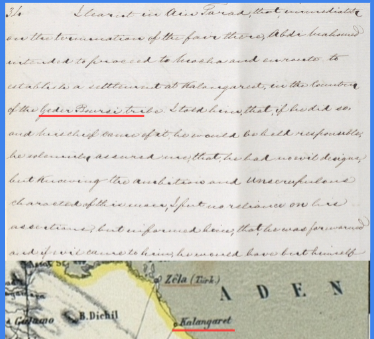 3/. I learnt in Ain Tarad, that immediately
on the termination of the fair there, Abdi Mahomed
intended to proceed to Mocha and en route, to
establish a settlement at Kalangaret, in the Country
of the Geder Boursi tribe. I told him, that, if he did so
and mischief came of it he would be held responsible,
he solemnly assured me, that, he had no evil designs,
but knowing the ambitious and unscrupulous
character of the man, I put no reliance on his
assertions, but informed him, that he was forewarned
and if evil came to him, he would have but himself
Zêla (Türk.)
A D E N
Galamo
B.Dichil
Kalangaret